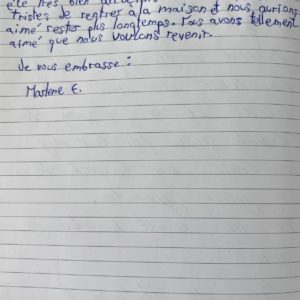 été très bien
tristes de rentrer à la maison et nous aurions
aimé rester plus longtemps. Nous avons tellement
aimé que nous voulons revenir.
Je vous embrasse :
Marlene E.